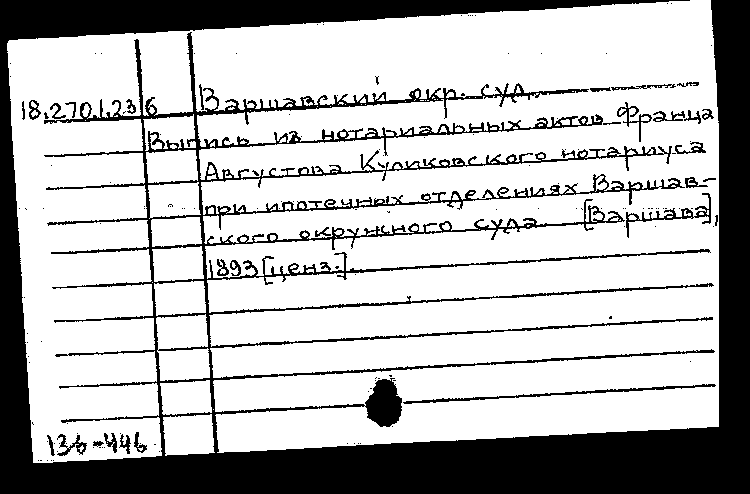 18.270.1.236 Варшавский окр. суд.
Выпись из нотариальных актов Франца
Августова Куликовского нотариуса
при ипотечных отделениях Варшав-
ского окружного суда. [Варшава],
1893 [ценз.].
136-446